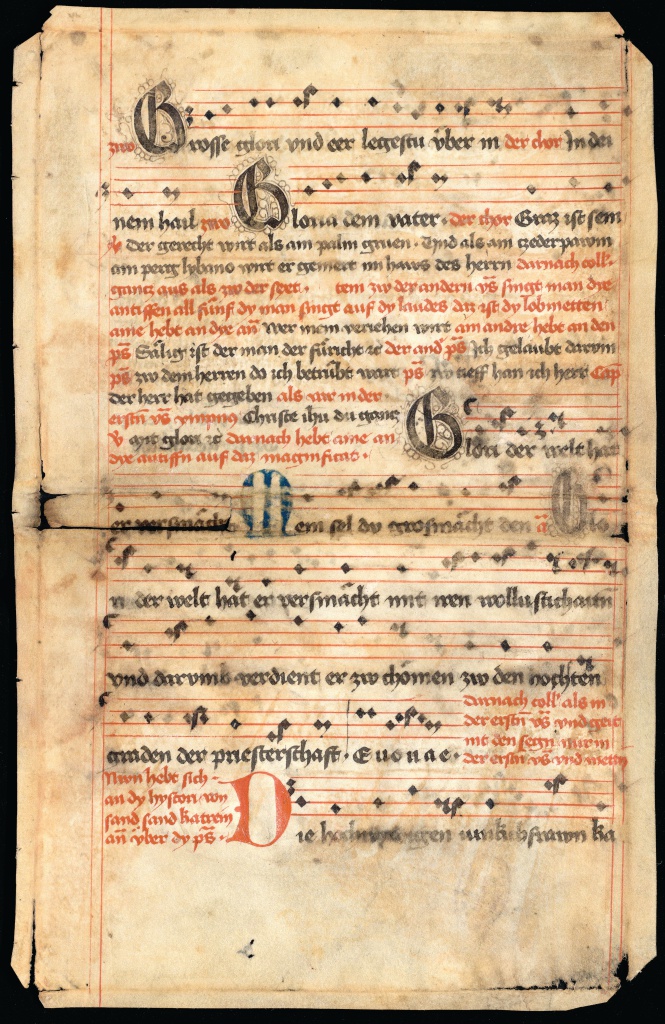 zwo Grosse glori vnd eer legestu über in der chor In dei
nem hail zwo Gloria dem vater · der chor Graz ist sein
der gerecht wirt als am palm gruen · Vnd als am czederpawm
am perg lybano wirt er gemert im haws des herrn darnach coll·
gancz aus als zw der seet · tem zw der andern vs singt man dye
antiffen all fünf dy man singt auf dy laudes daz ist dy lobmetten
aine hebt an dye ann Wer mein veriehen wirt am andre hebt an den
ps Sälig ist der man der füricht ic der and ps Ich gelaubt darvm
ps zw dem herren do ich betrübt wart ps tieff han ich herr Cap
der herr hat gegeben als vor in der
erstn vs ympnus Christe ihu du gancz
mit glori ic darnach hebt aine an
dye antiffn auf daz magnificat · Glori der welt hat
er versmächt Mein sel du grosmächt den a Glo
ri der welt hat er versmächt mit iren wollustichaitn
vnd darvmb verdient er zw chömen zw den höchten
darnach coll als in
der erstn vs vnd geit
mit den segn nur in
graden der priesterschaft · E v o u a e · der erstn vs vnd mettn
Nwn hebt sich
an dy hystori von
sand sand katrein
ann über dy ps · Die hochwirdigen iunkchfrawn ka